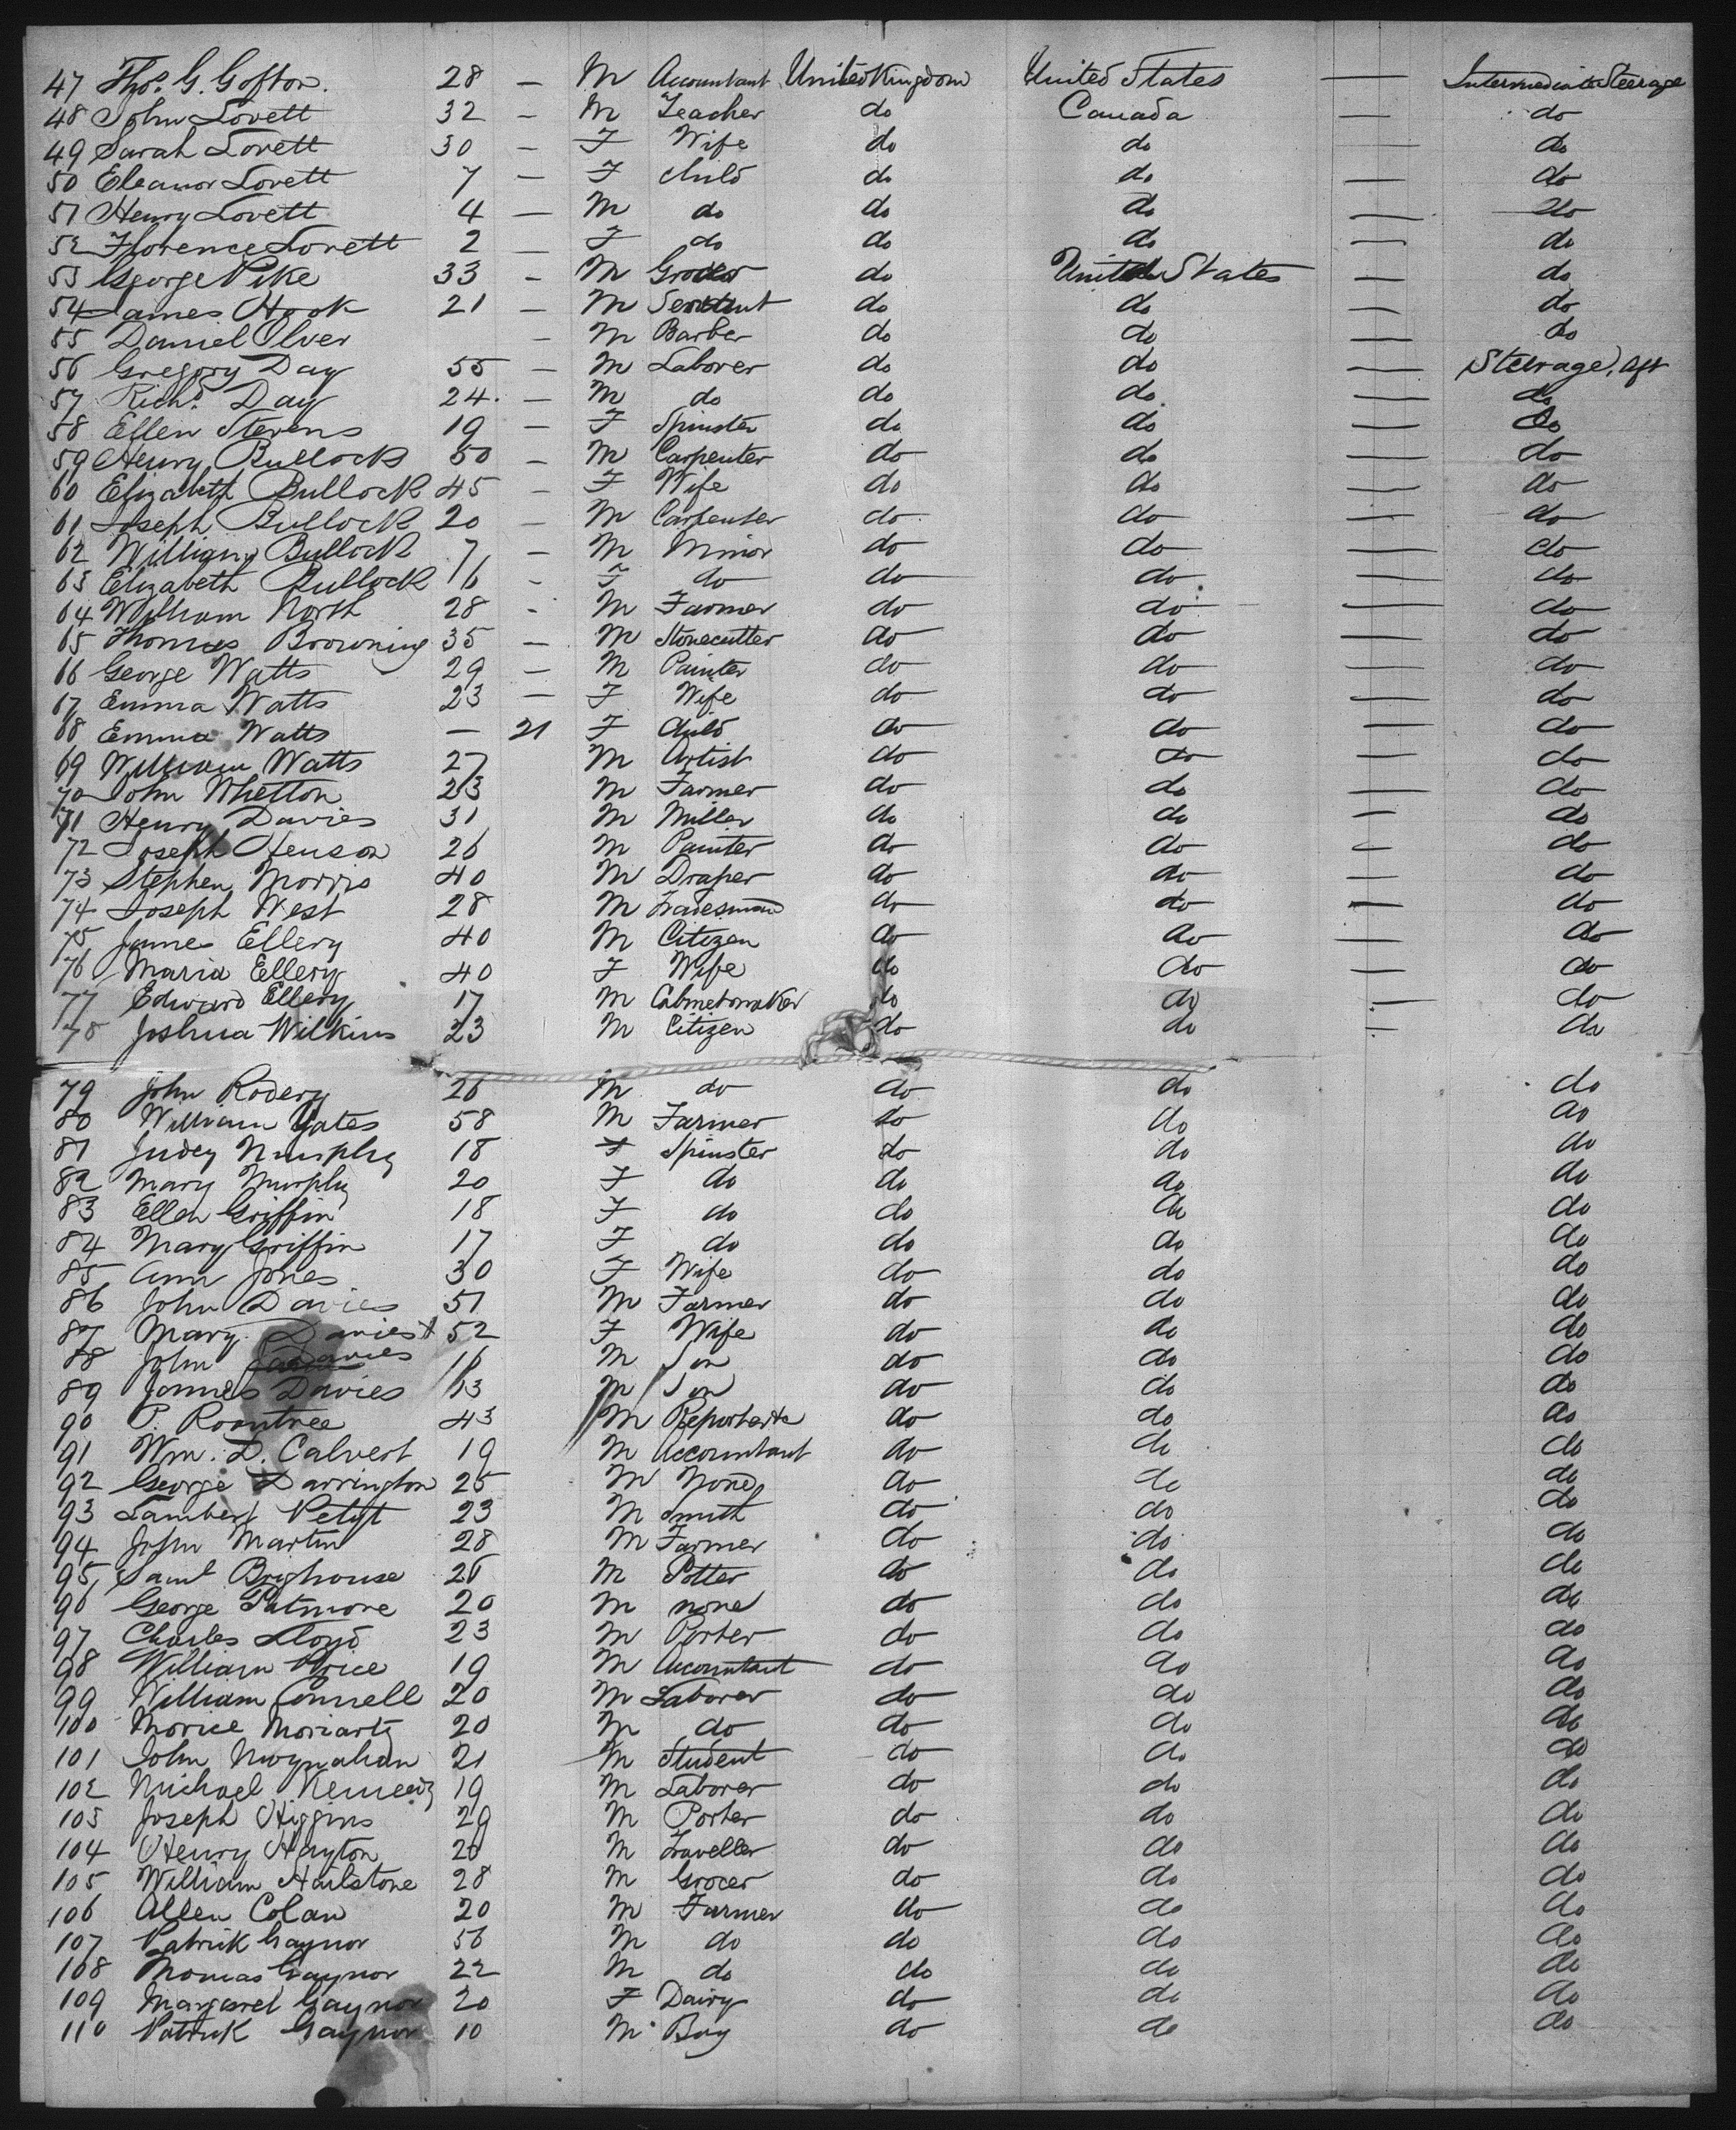 47 Thos. G. Gofton. 28 — M Accountant United Kingdom United States — Intermediate Steerage
48 John Lovett 32 — M Teacher do Canada — do
49 Sarah Lovett 30 — F Wife do do — do
50 Eleanor Lovett 7 — F Child do do — do
51 Henry Lovett 4 — M do do do — do
52 Florence Lovett 2 — F do do do — do
53 George Pike 33 — M Grocer do United States — do
54 James Hook 21 — M Servant do do — do
55 Daniel Olver — M Barber do do — do
56 Gregory Day 55 — M Laborer do do — Steerage, aft
57 Richd. Day 24 — M do do do — do
58 Ellen Stevens 19 — F Spinster do do — do
59 Henry Bullock 50 — M Carpenter do do — do
60 Elizabeth Bullock 45 — F Wife do do — do
61 Joseph Bullock 20 — M Carpenter do do — do
62 William Bullock 7 — M Minor do do — do
63 Elizabeth Bullock 16 — F do do do — do
64 William North 28 — M Farmer do do — do
65 Thomas Browning 35 — M Stonecutter do do — do
66 George Watts 29 — M Painter do do — do
67 Emma Watts 23 — F Wife do do — do
68 Emma Watts — 21 F Child do do — do
69 William Watts 27 M Artist do do — do
70 John Whetton 23 M Farmer do do — do
71 Henry Davies 31 M Miller do do — do
72 Joseph Henson 26 M Painter do do — do
73 Stephen Morris 40 M Draper do do — do
74 Joseph West 28 M Tradesman do do — do
75 James Ellery 40 M Citizen do do — do
76 Maria Ellery 40 F Wife do do — do
77 Edward Ellery 17 M Cabinetmaker do do — do
78 Joshua Wilkins 23 M Citizen do do — do
79 John Rodery 26 M do do do do
80 William Yates 58 M Farmer do do do
81 Judey Murphy 18 F Spinster do do do
82 Mary Murphy 20 F do do do do
83 Ellen Griffin 18 F do do do do
84 Mary Griffin 17 F do do do do
85 Ann Jones 30 F Wife do do do
86 John Davies 51 M Farmer do do do
87 Mary Davies 52 F Wife do do do
88 John Davies 16 M Son do do do
89 James Davies 13 M Son do do do
90 P. Roantree 43 M do do do
91 Wm. D. Calvert 19 M Accountant do do do
92 George Darrington 25 M None do do do
93 Lambert 23 M Smith do do do
94 John Martin 28 M Farmer do do do
95 Saml Brighouse 26 M Potter do do do
96 George Patmore 20 M none do do do
97 Charles Lloyd 23 M Porter do do do
98 William Price 19 M Accountant do do do
99 William Connell 20 M Laborer do do do
100 Morice Moriarty 20 M do do do do
101 John Moynahan 21 M Student do do do
102 Michael Kennedy 19 M Laborer do do do
103 Joseph Higgins 29 M Porter do do do
104 Henry Hayton 26 M Traveller do do do
105 William Hailstone 28 M Grocer do do do
106 Allen Colan 20 M Farmer do do do
107 Patrick Gaynor 56 M do do do do
108 Thomas Gaynor 22 M do do do do
109 Margaret Gaynor 20 F Dairy do do do
110 Patrick Gaynor 10 M Boy do do do